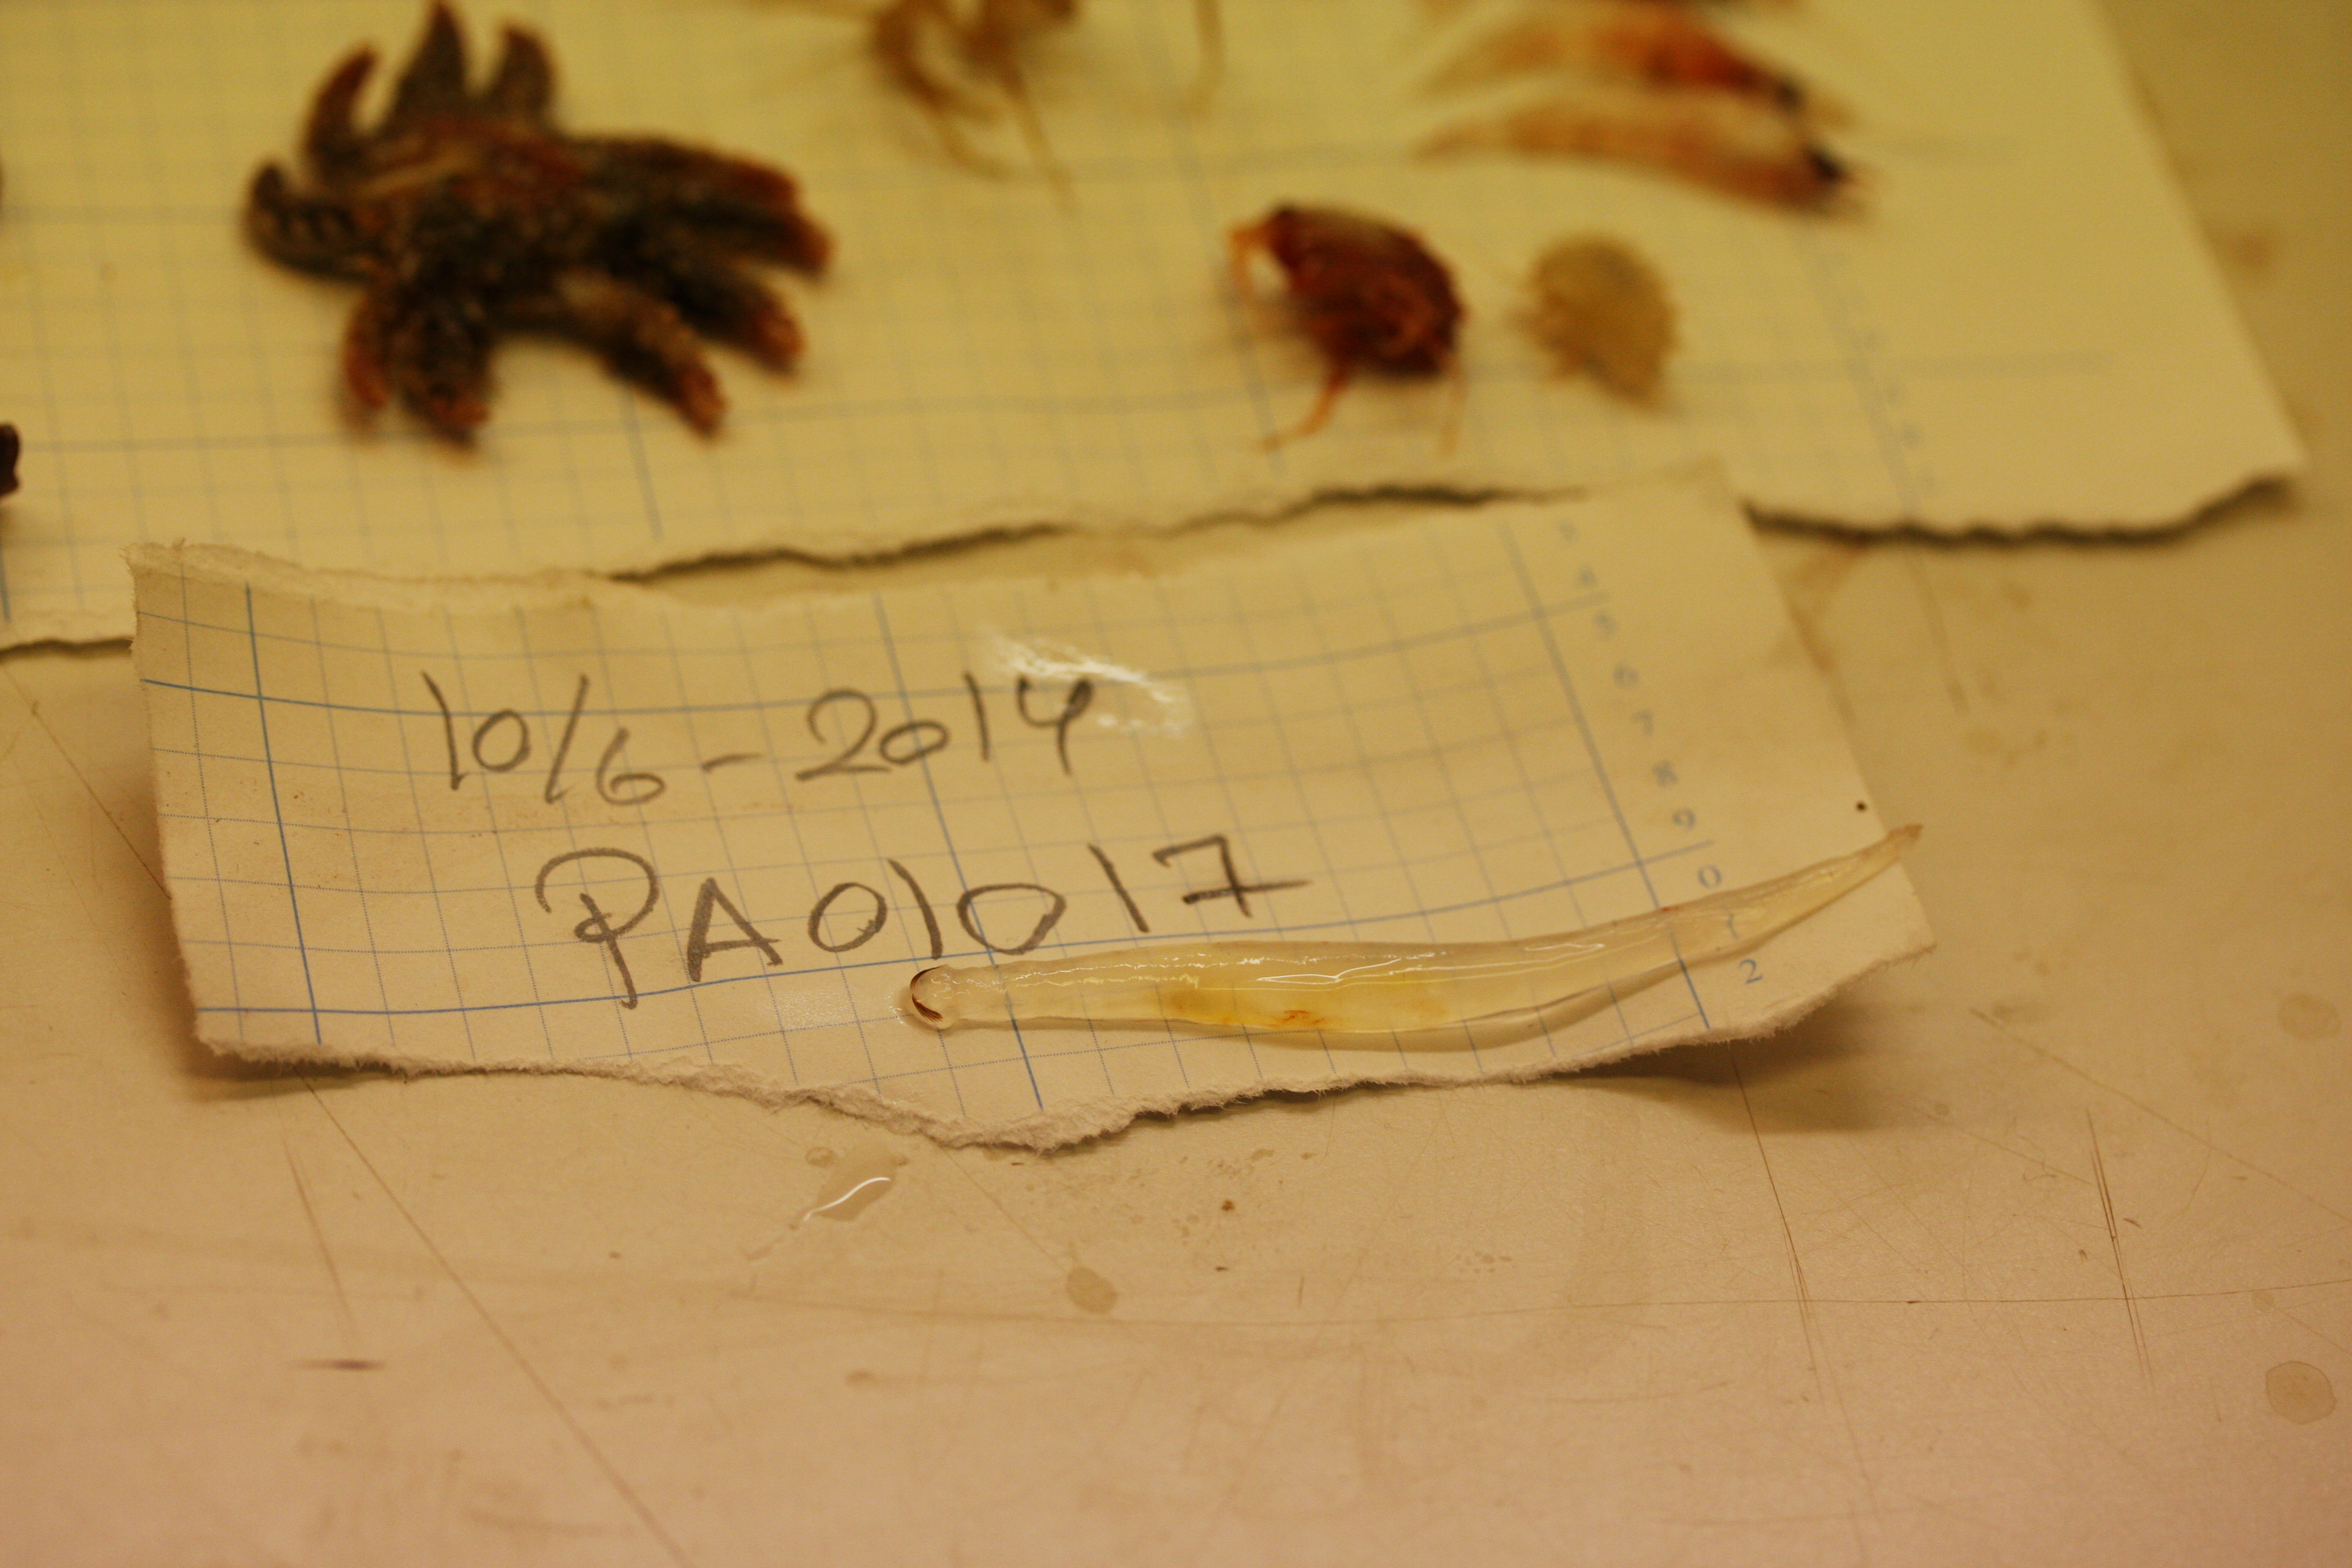 10/6-2014
PA01017
4
5
6
7
8
9
0
1
2